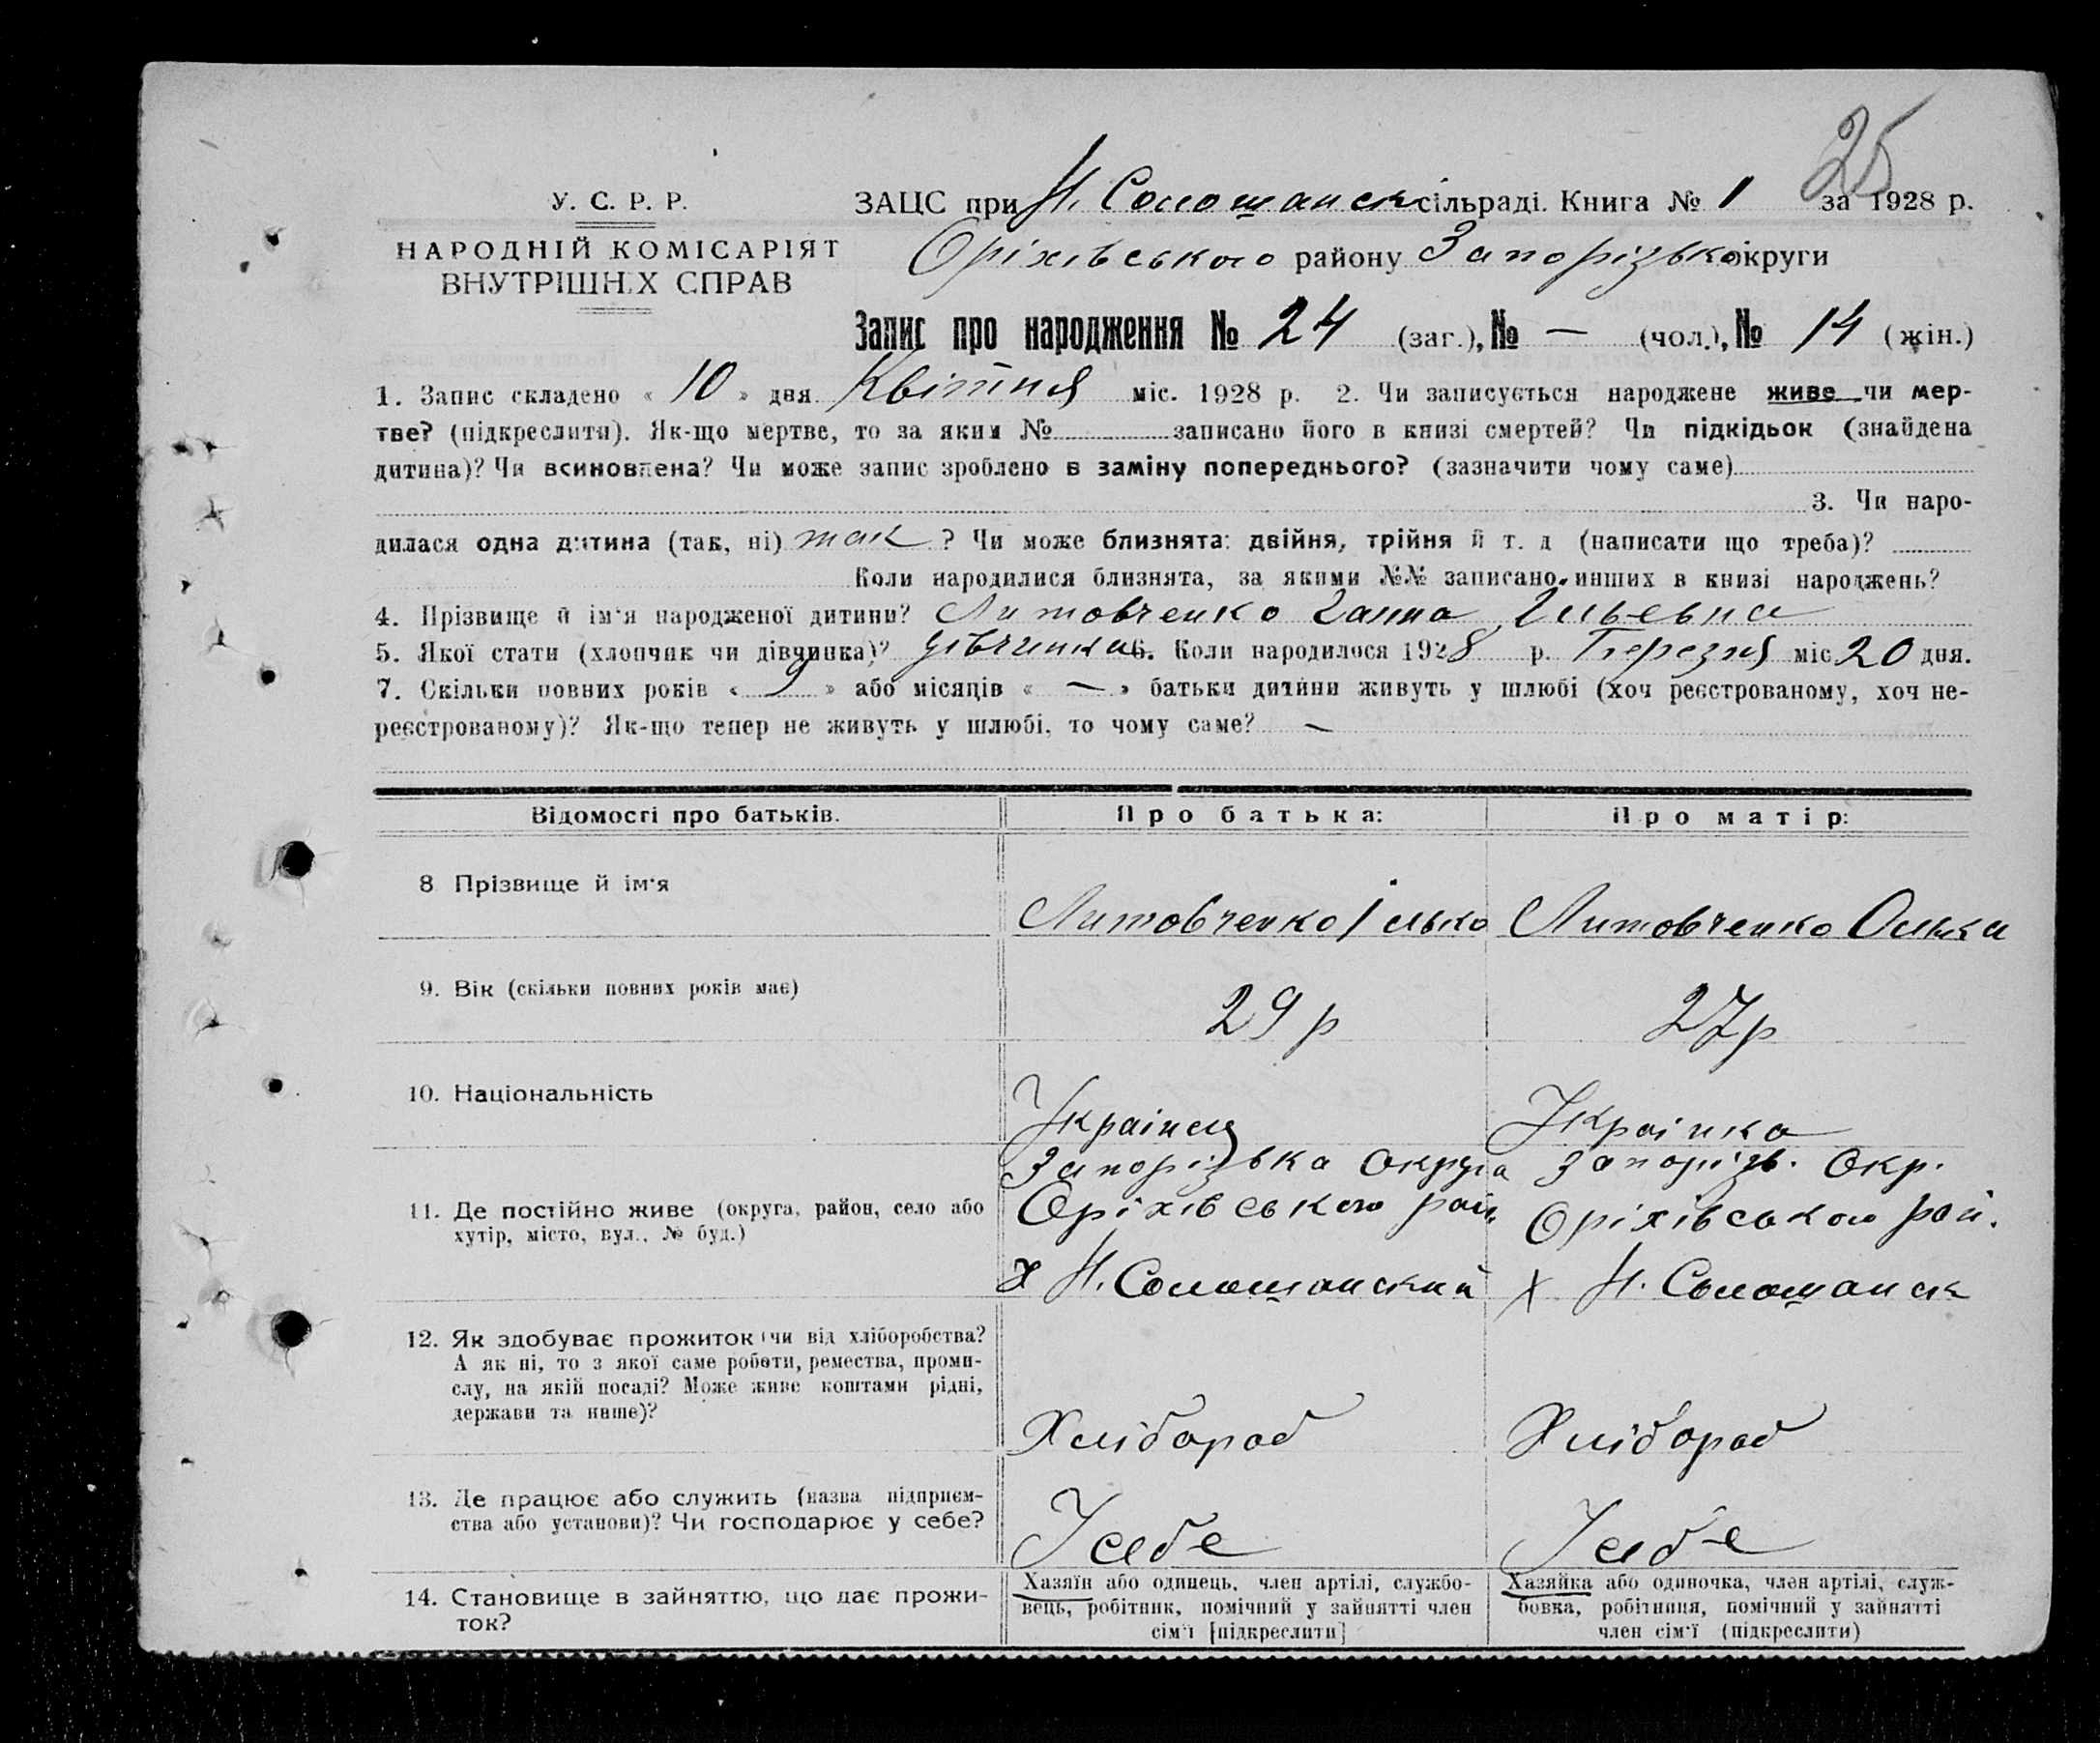 25
У. С. Р. Р.
НАРОДНІЙ КОМІСАРІЯТ
ВНУТРІШНІХ СПРАВ
ЗАЦС при Н. Солошанск сільраді. Книга № 1 за 1928 р.
Оріхівського району Запорізько округи
Запис про народження № 24 (заг.), № — (чол.), № 14 (жін.)
1. Запис складено « 10 » дня Квітня міс. 1928 р. 2. Чи записується народжене живе чи мер-
тве? (підкреслити). Як-що мертве, то за яким № записано його в книзі смертей? Чи підкідьок (знайдена
дитина)? Чи всиновлена? Чи може запис зроблено в заміну попереднього? (зазначити чому саме)
3. Чи наро-
дилася одна дитина (так, ні) так ? Чи може близнята: двійня, трійня й т. д (написати що треба)?
Коли народилися близнята, за якими №№ записано инших в книзі народжень?
4. Прізвище й ім'я народженої дитини? Литовченко Ганна Ільевна
5. Якої стати (хлопчик чи дівчинка)? дівчинка 6. Коли народилося 1928 р. Березня міс 20 дня.
7. Скільки повних років « 9 » або місяців « — » батьки дитини живуть у шлюбі (хоч реєстрованому, хоч не-
реєстрованому)? Як-що тепер не живуть у шлюбі, то чому саме? —
Відомості про батьків. Про батька: Про матір:
8 Прізвище й ім'я Литовченко Ілько Литовченко Олька
9. Вік (скільки повних років має) 29 р 27 р
10. Національність Українец Українка
11. Де постійно живе (округа, район, село або
хутір, місто, вул., № буд.)
Запорізька округа Оріхівського рай. х Н. Солошанский
Запорізь. Окр. Оріхівського рай. х Н. Солошанск
12. Як здобуває прожиток (чи від хліборобства?
А як ні, то з якої саме роботи, ремества, проми-
слу, на якій посаді? Може живе коштами рідні,
держави та инше)?
Хлібороб Хлібороб
13. Де працює або служить (назва підприєм-
ства або установи)? Чи господарює у себе?
У себе У себе
14. Становище в зайняттю, що дає прожи-
ток?
Хазяїн або одинець, член артілі, службо-
вець, робітник, помічний у зайнятті член
сім'ї [підкреслити]
Хазяйка або одиночка, член артілі, служ-
бовка, робітниця, помічний у зайнятті
член сім'ї (підкреслити)